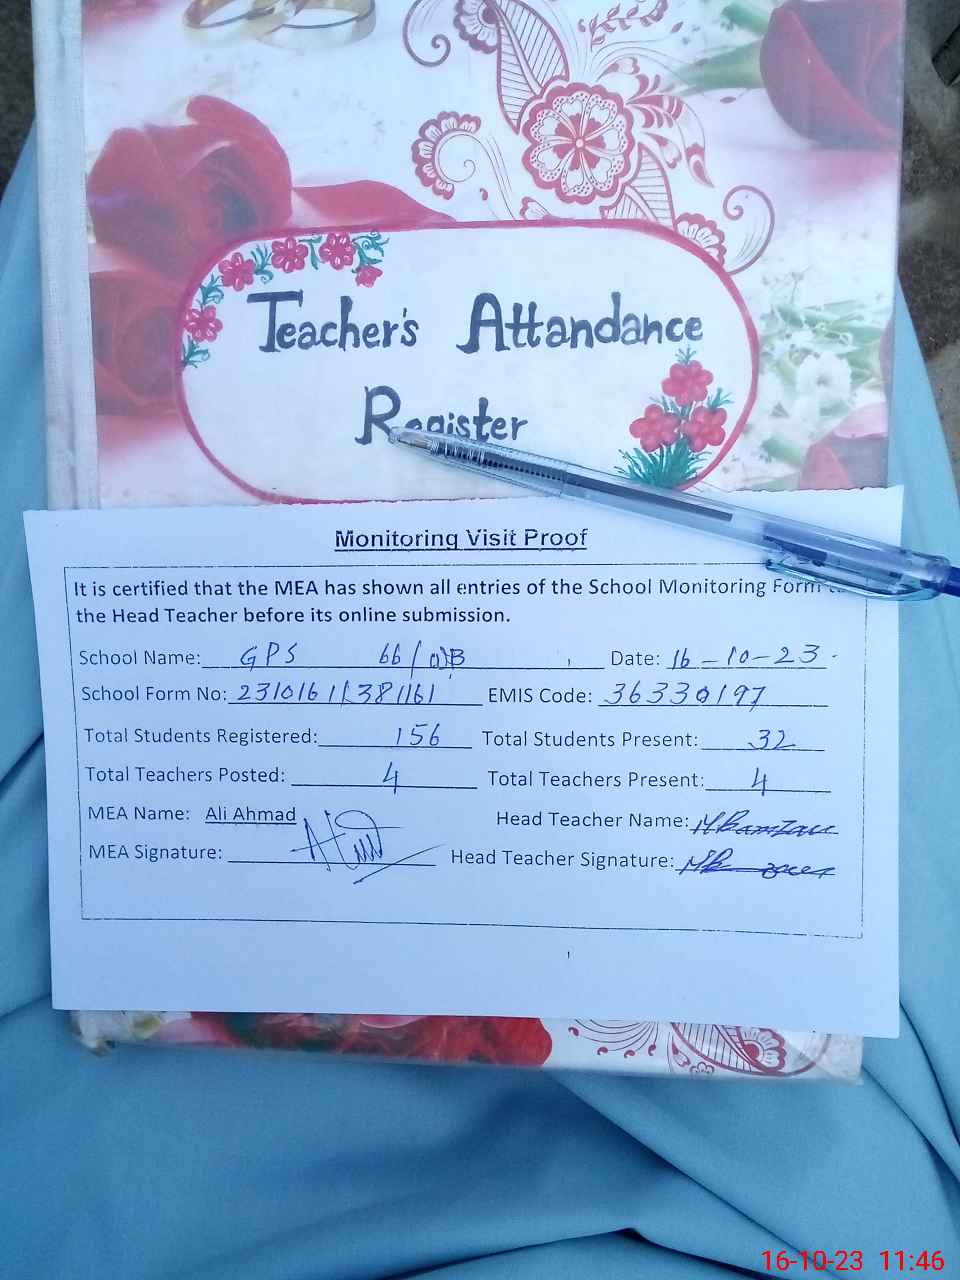 Teacher's Attandance
Register
Monitoring Visit Proof
It is certified that the MEA has shown all entries of the School Monitoring Form
the Head Teacher before its online submission.
School Name: GPS 66/ Date: 16-10-23
School Form No: EMIS Code: 36330197
Total Students Registered: 156 Total Students Present: 32
Total Teachers Posted: 4 Total Teachers Present: 4
MEA Name: Ali Ahmad Head Teacher Name:
MEA Signature: Head Teacher Signature:
16-10-23 11:46